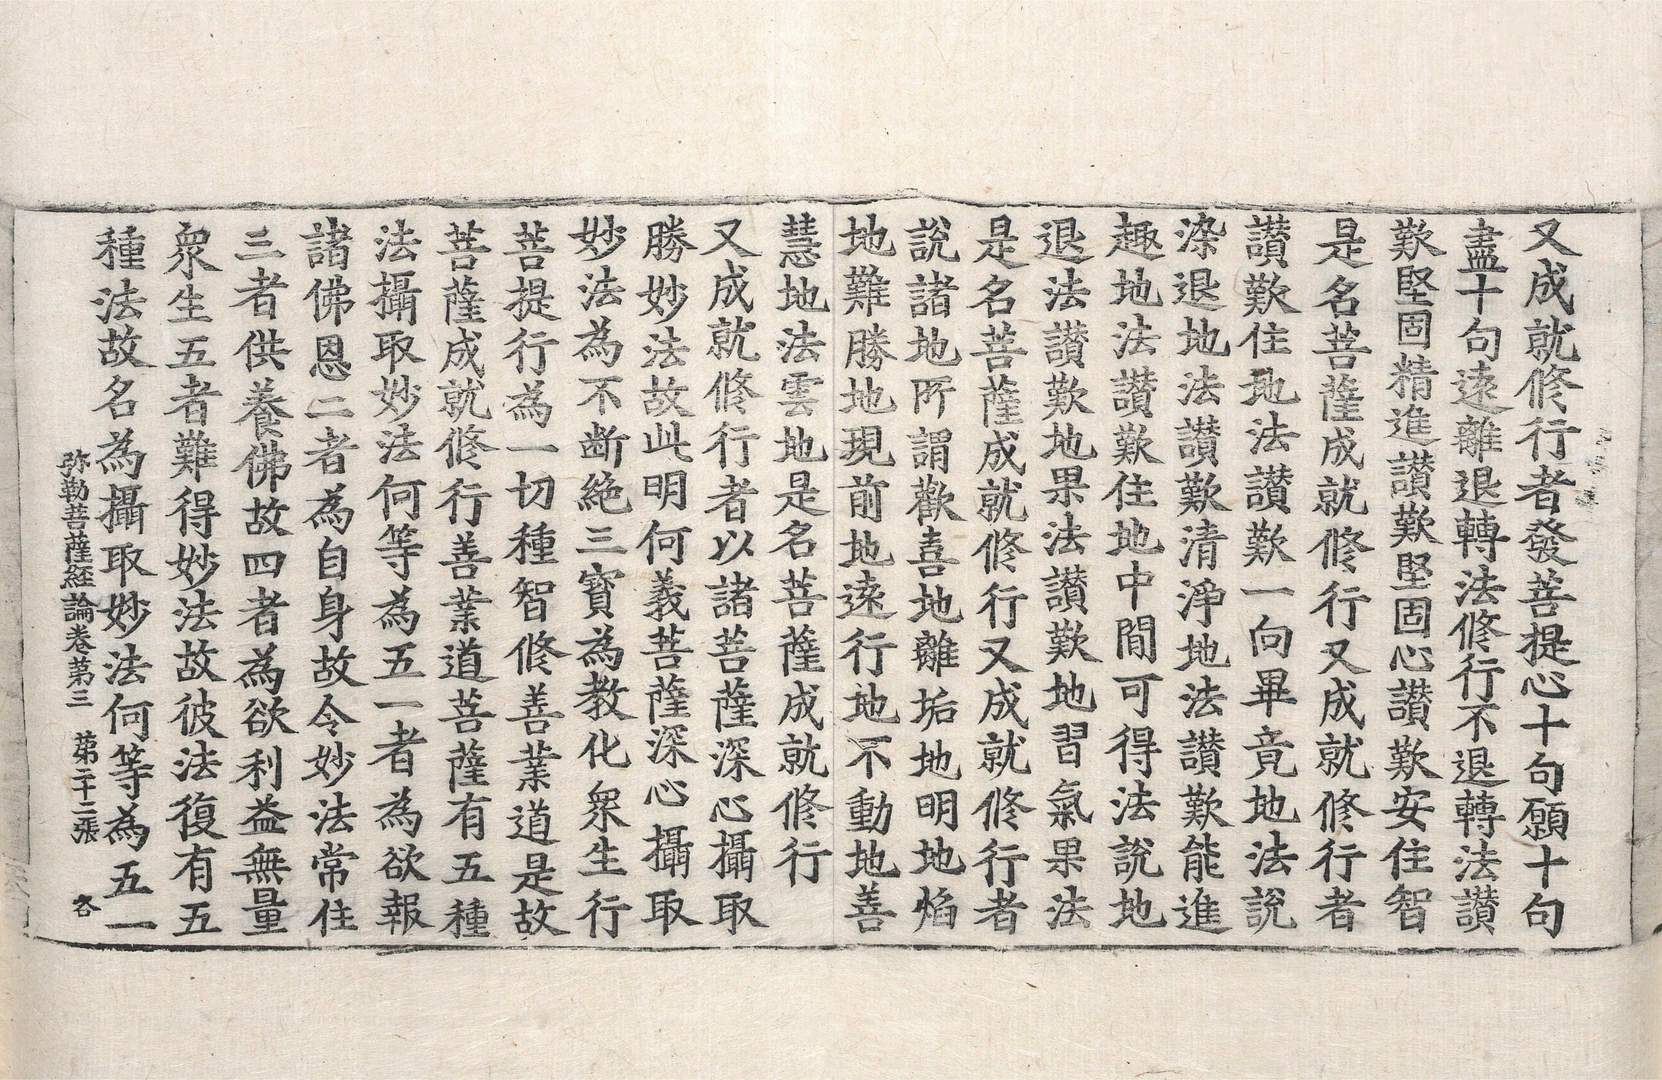 又成就修行者發菩提心十句願十句
盡十句遠離退轉法修行不退轉法讃
歎堅固精進讃歎堅固心讃歎安住智
是名菩薩成就修行又成就修行者
讃歎住地法讃歎一向畢竟地法說
染退地法讃歎清淨地法讃歎能進
趣地法讃歎住地中間可得法說地
退法讃歎地果法讃歎地習氣果法
是名菩薩成就修行又成就修行者
說諸地所謂歡喜地離垢地明地焰
地難勝地現前地遠行地不動地善
慧地法雲地是名菩薩成就修行
又成就修行者以諸菩薩深心攝取
勝妙法故此明何義菩薩深心攝取
妙法為不断絶三寳為教化衆生行
菩提行為一切種智修善業道是故
菩薩成就修行善業道菩薩有五種
法攝取妙法何等為五一者為欲報
諸佛恩二者為自身故令妙法常住
三者供養佛故四者為欲利益無量
衆生五者難得妙法故彼法復有五
種法故名為攝取妙法何等為五一
弥勒菩薩経論卷第三 第二十三張